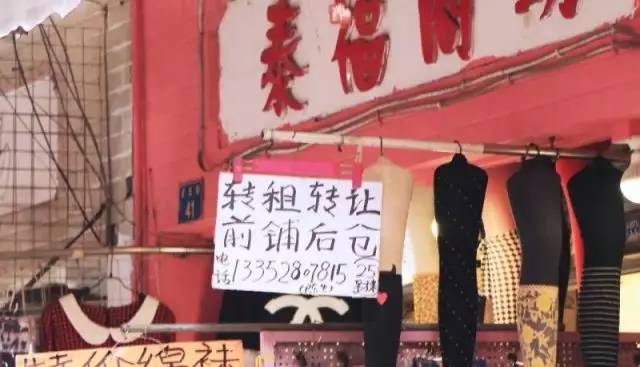 泰福商
41
转租转让
前铺后仓
电话 13352807815
25
特价棉袜